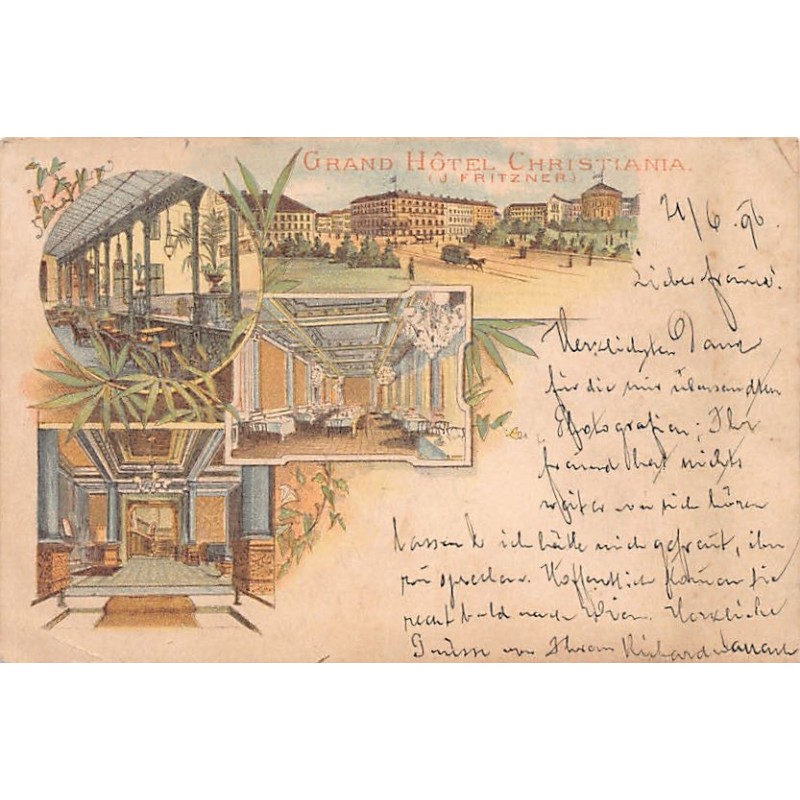 GRAND HÔTEL CHRISTIANIA.
(J. FRITZNER)
21/6. 96.
Lieber Freund!
Herzlichsten Dank
für die mir übersandten
Photografien; Ihr
Freund hat nichts
weiter von sich hören
lassen & ich hätte mich gefreut, ihn
zu sprechen. Hoffentlich kommen Sie
recht bald nach Wien. Herzliche
Grüsse von Ihrem Richard